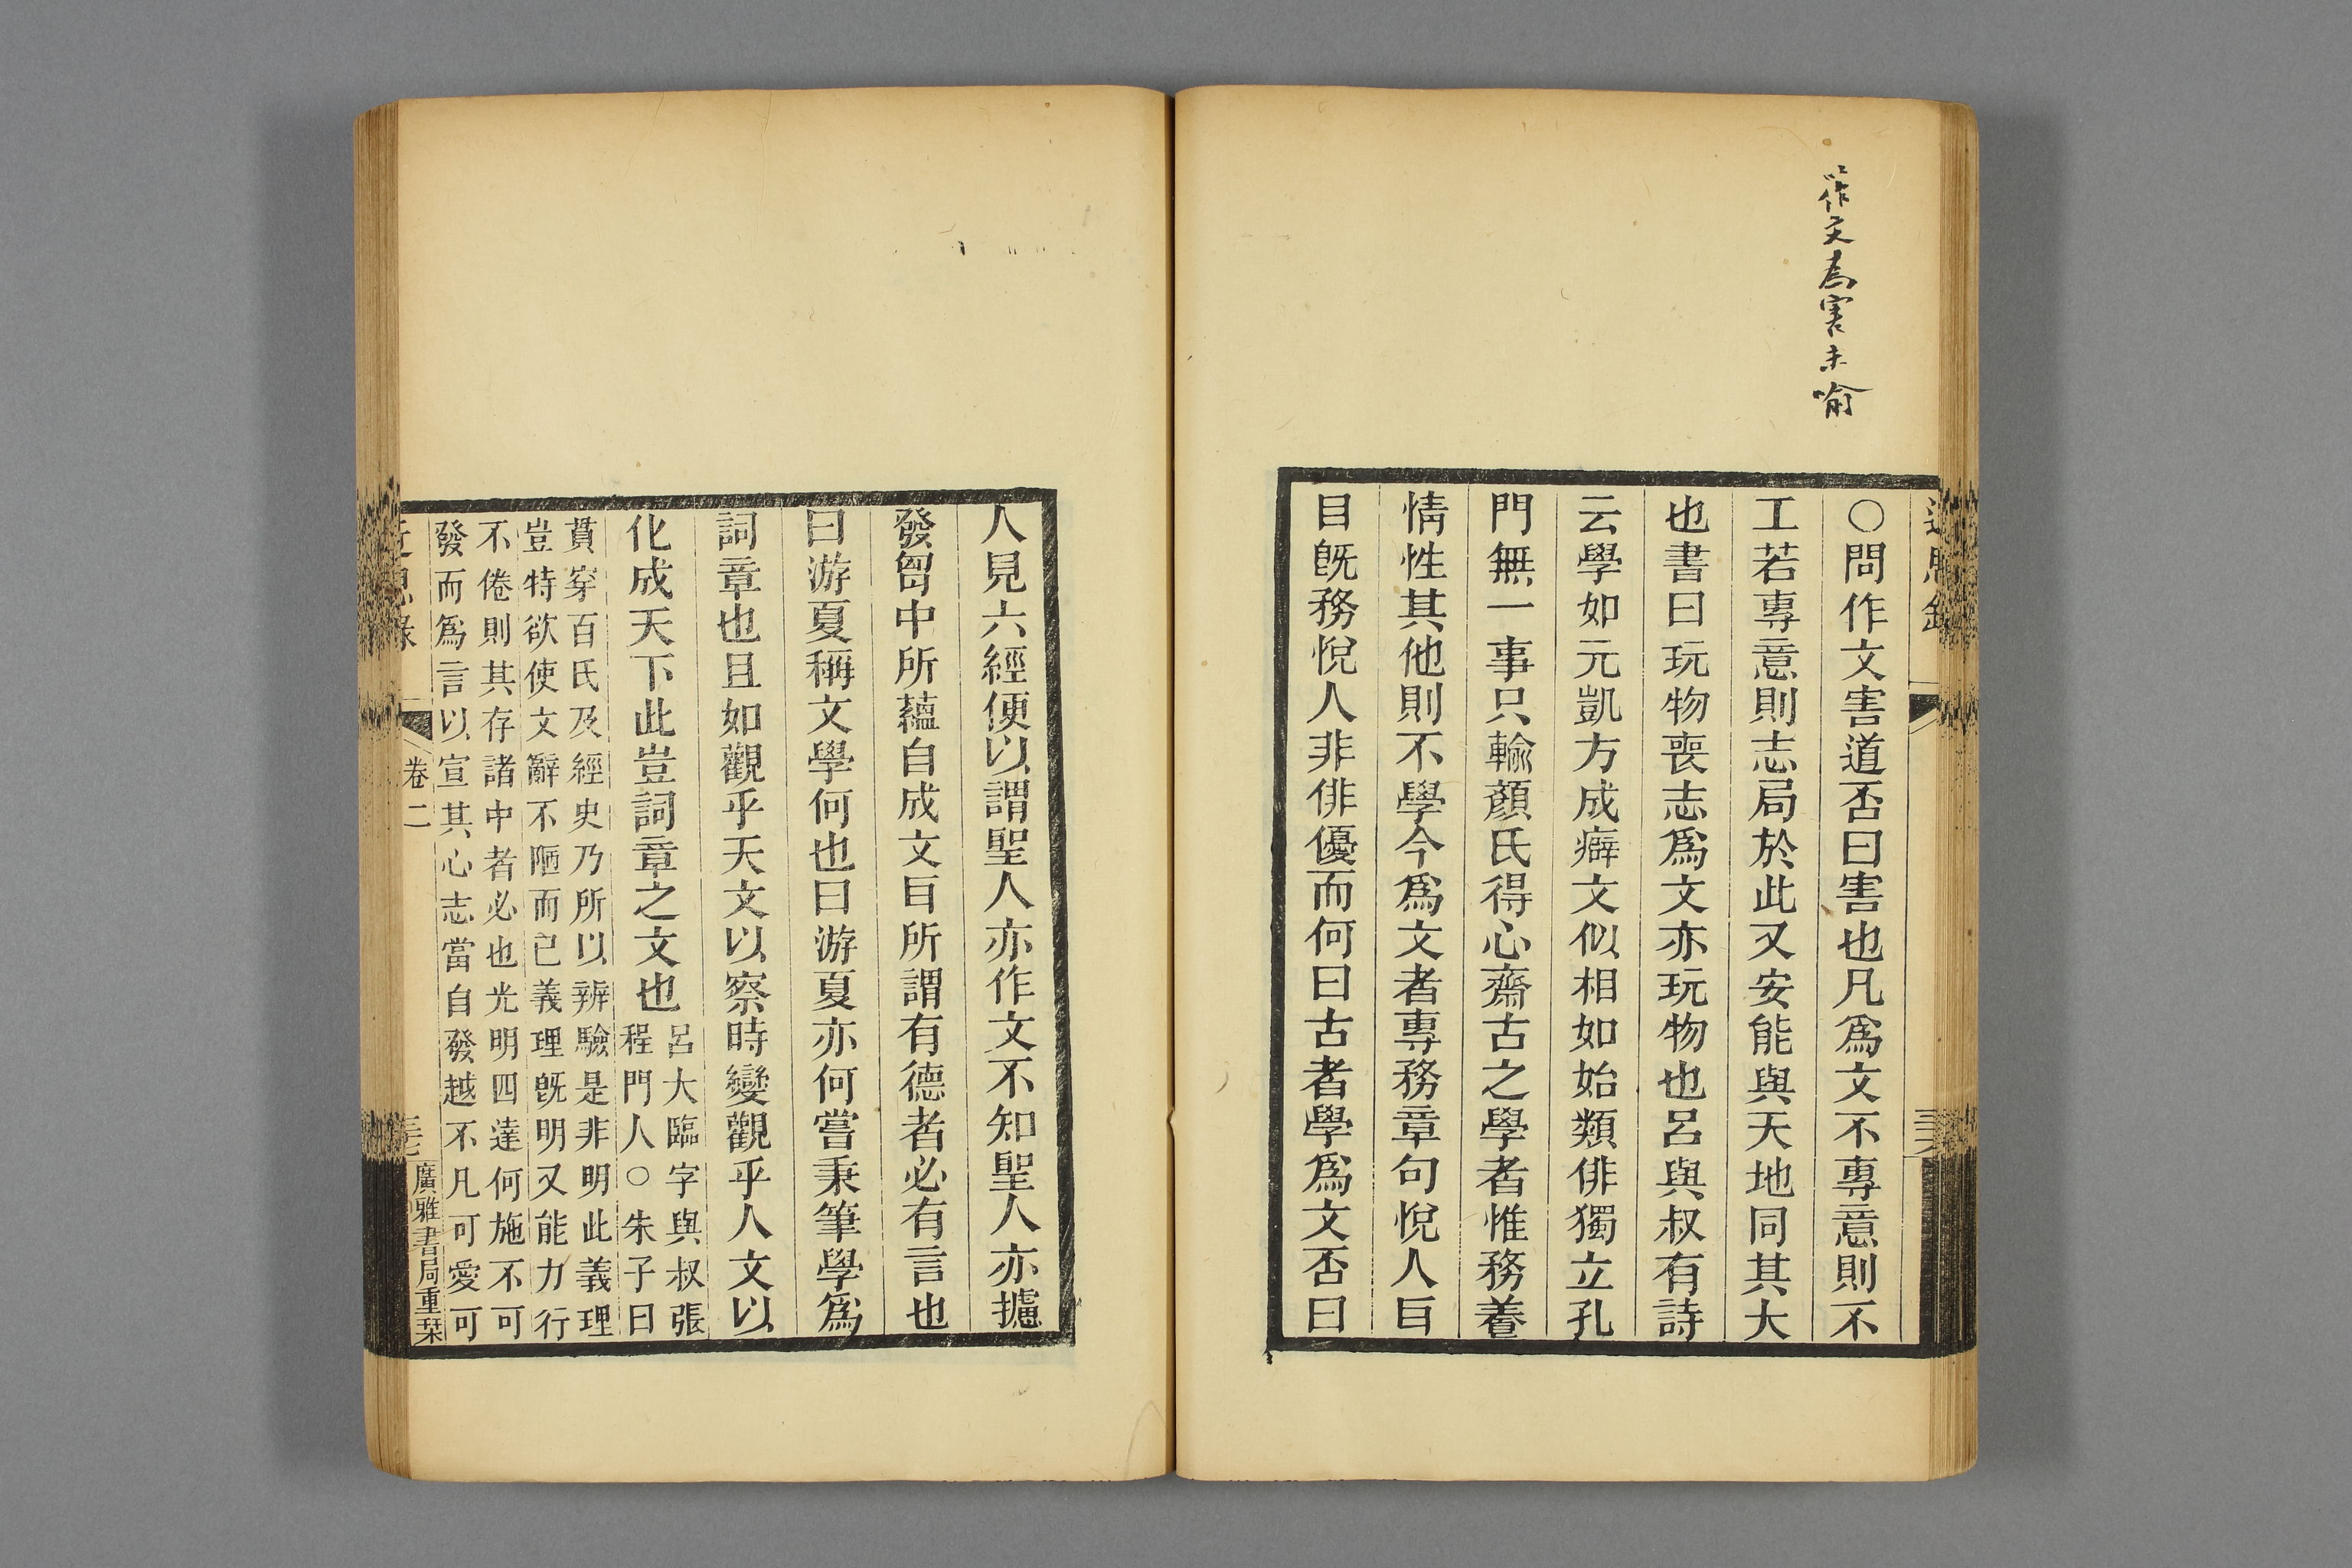 以作文為害未喻
近思錄
三六
○問作文害道否曰害也凡爲文不專意則不
工若專意則志局於此又安能與天地同其大
也書曰玩物喪志爲文亦玩物也呂與叔有詩
云學如元凱方成癖文似相如始類俳獨立孔
門無一事只輸顏氏得心齋古之學者惟務養
情性其他則不學今爲文者專務章句悅人耳
目旣務悅人非俳優而何曰古者學爲文否曰
人見六經便以謂聖人亦作文不知聖人亦攄
發胷中所蘊自成文耳所謂有德者必有言也
曰游夏稱文學何也曰游夏亦何嘗秉筆學爲
詞章也且如觀乎天文以察時變觀乎人文以
化成天下此豈詞章之文也
呂大臨字與叔張
程門人○朱子曰
貫穿百氏及經史乃所以辨驗是非明此義理
豈特欲使文辭不陋而已義理旣明又能力行
不倦則其存諸中者必也光明四達何施不可
發而爲言以宣其心志當自發越不凡可愛可
近思錄
卷二
三七
廣雅書局重栞